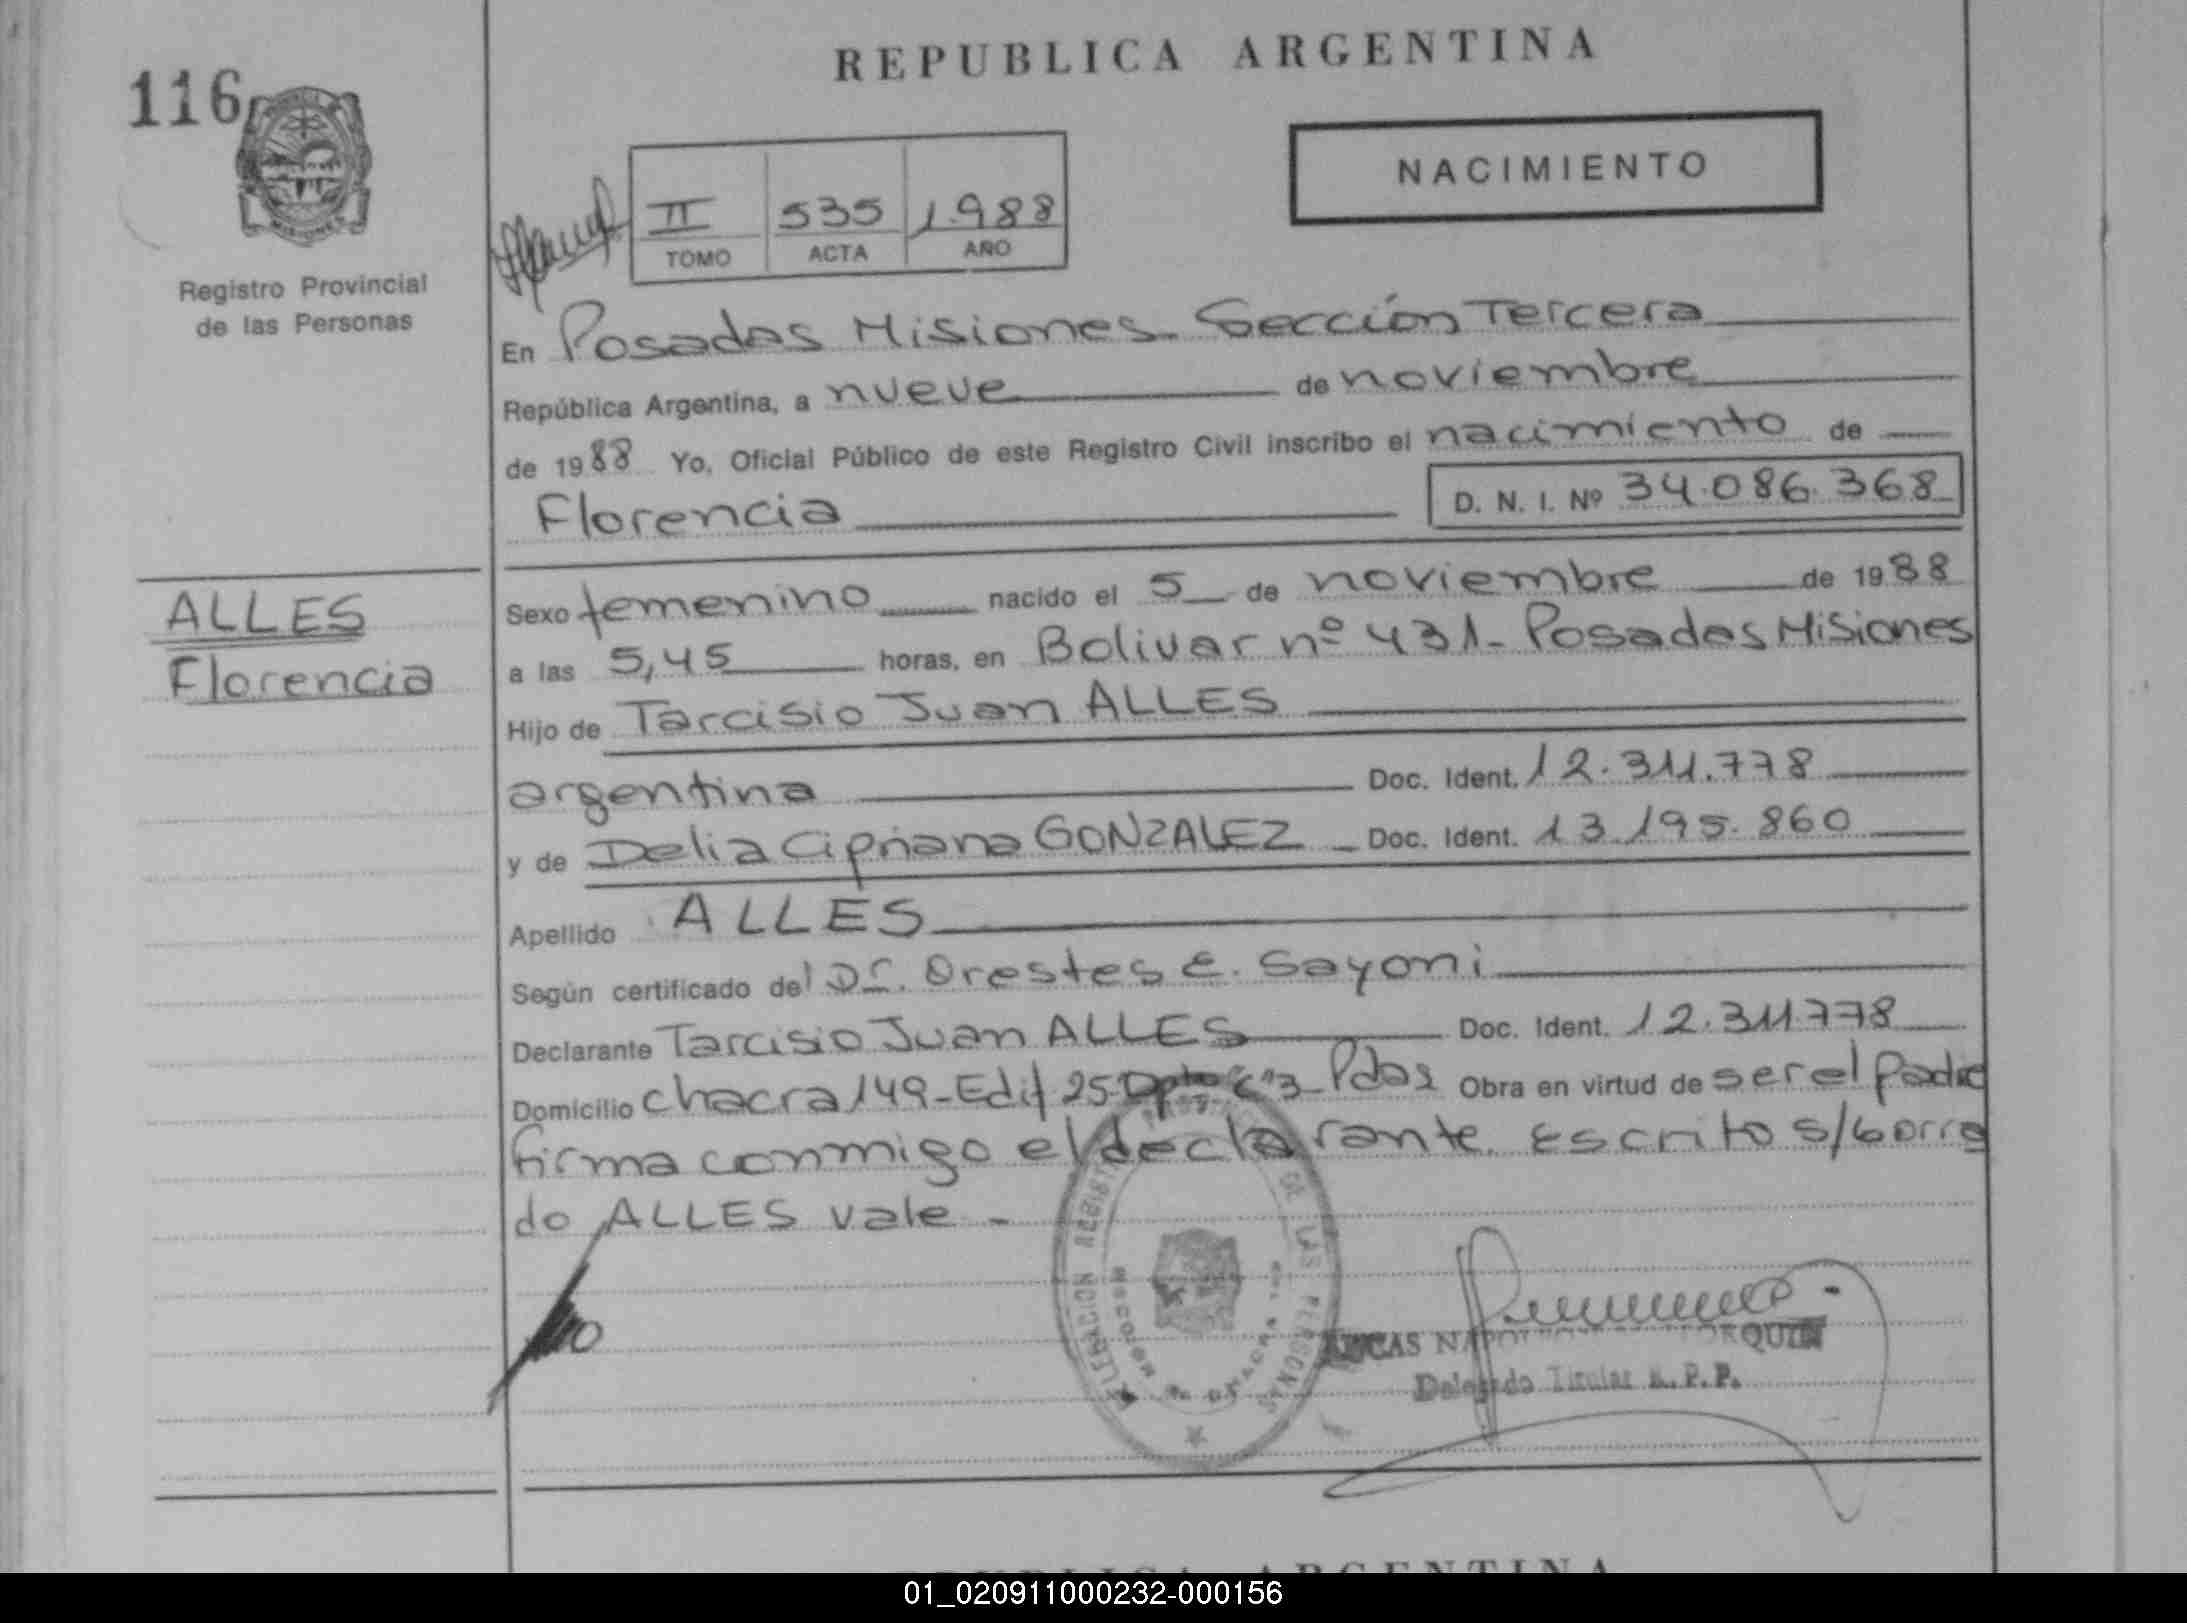 REPUBLICA ARGENTINA
116
NACIMIENTO
II 535 1.988
TOMO ACTA AÑO
Registro Provincial
de las Personas
En Posadas Misiones. Sección Tercera
República Argentina, a nueve de noviembre
de 1988 Yo, Oficial Público de este Registro Civil inscribo el nacimiento de
Florencia D. N. I. Nº 34.086.368
ALLES
Florencia
Sexo femenino nacido el 5 de noviembre de 1988
a las 5,45 horas, en Bolivar nº 431- Posadas Misiones
Hijo de Tarcisio Juan ALLES
argentina Doc. Ident. 12.311.778
y de Delia Cipriana GONZALEZ Doc. Ident. 13.195.860
Apellido ALLES
Según certificado del Dr. Orestes E. Sayoni
Declarante Tarcisio Juan ALLES Doc. Ident. 12.311.778
Domicilio chacra 149-Edif 25-Dpto Pdas Obra en virtud de ser el padre
firma conmigo el declarante. Escrito s/borra
do ALLES vale -
DE LAS PERSONAS
LUCAS
Delegado Titular R.P.P.
REPUBLICA ARGENTINA
01_020911000232-000156